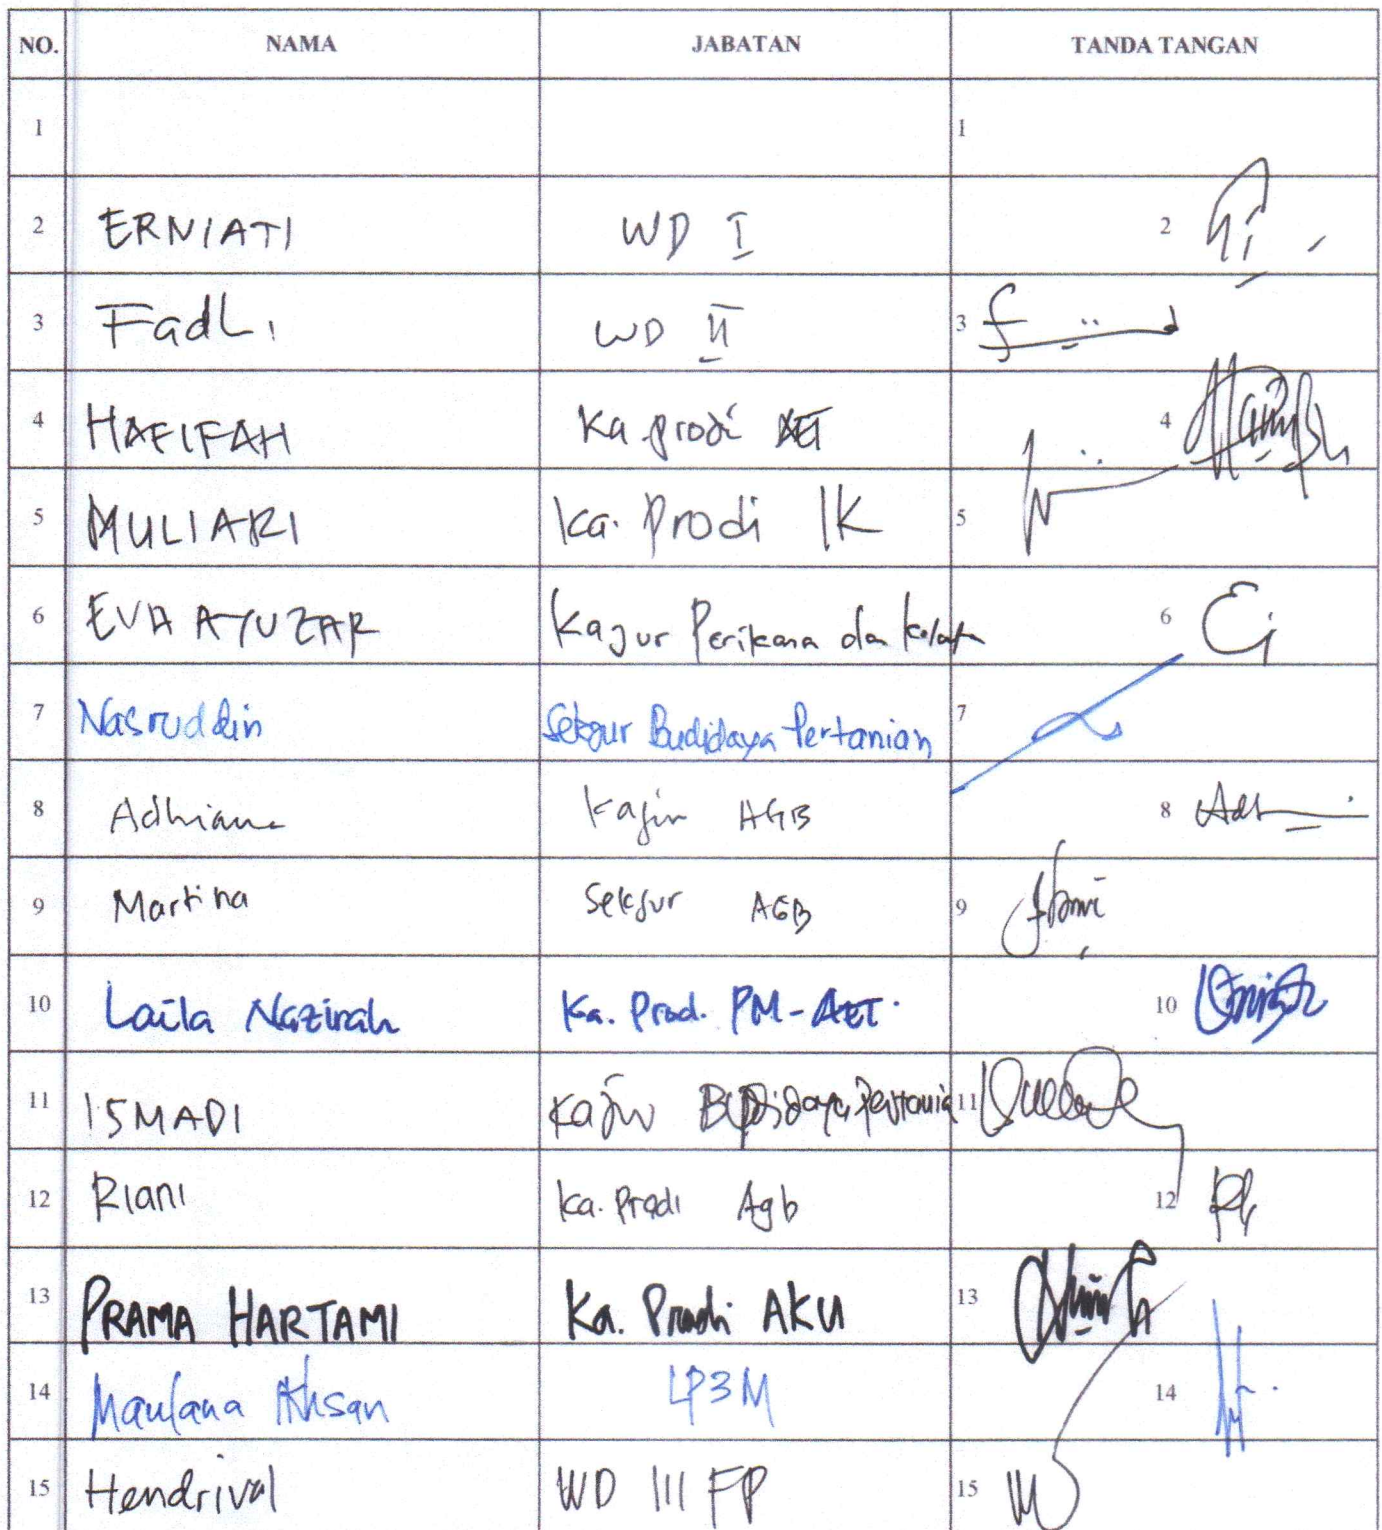 NO. NAMA JABATAN TANDA TANGAN
1 1
2 ERNIATI WD I 2
3 Fadli WD II 3
4 HAFIFAH Ka prodi AET 4
5 MULIARI Ka. Prodi IK 5
6 EVA AYUZAR Kajur Perikana dan 6
7 Nasruddin Sekjur Budidaya Pertanian 7
8 Adhiana Kajur AGB 8
9 Martina Sekjur AGB 9
10 Laila Nazirah Ka. Prod. PM-AET. 10
11 ISMADI Kajur Budidaya Pertania 11
12 Riani Ka. Prodi Agb 12
13 PRAMA HARTAMI Ka. Prodi AKU 13
14 Maulana Ahsan LP3M 14
15 Hendrival WD III FP 15